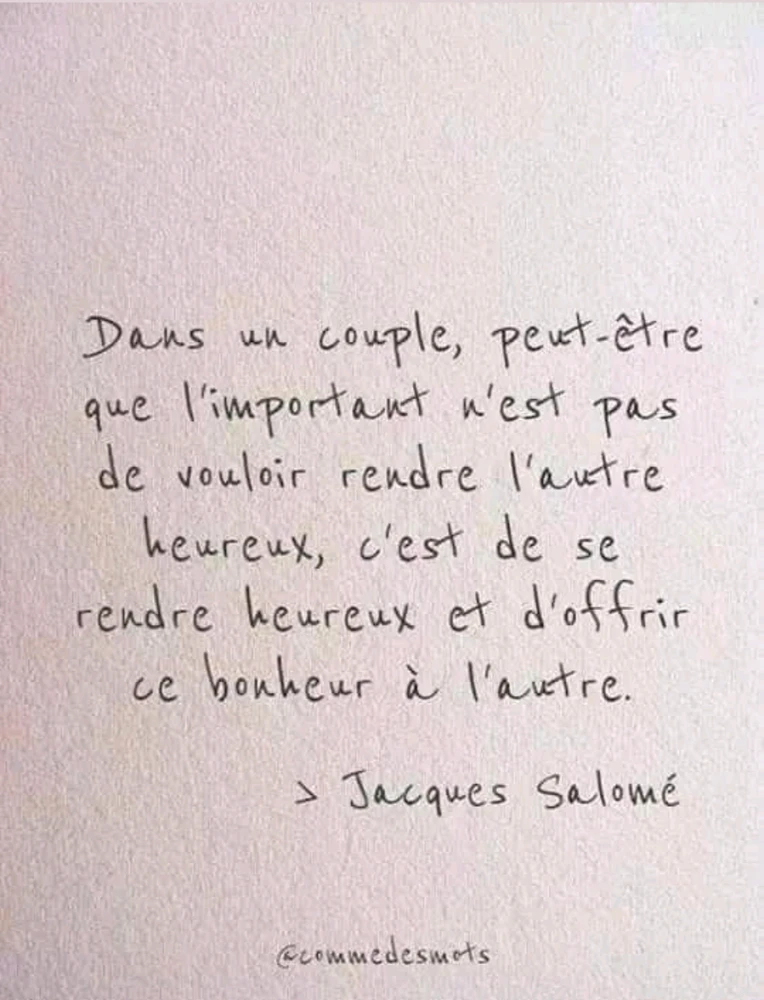 Dans un couple, peut-être
que l'important n'est pas
de vouloir rendre l'autre
heureux, c'est de se
rendre heureux et d'offrir
ce bonheur à l'autre.
> Jacques Salomé
@commedesmots